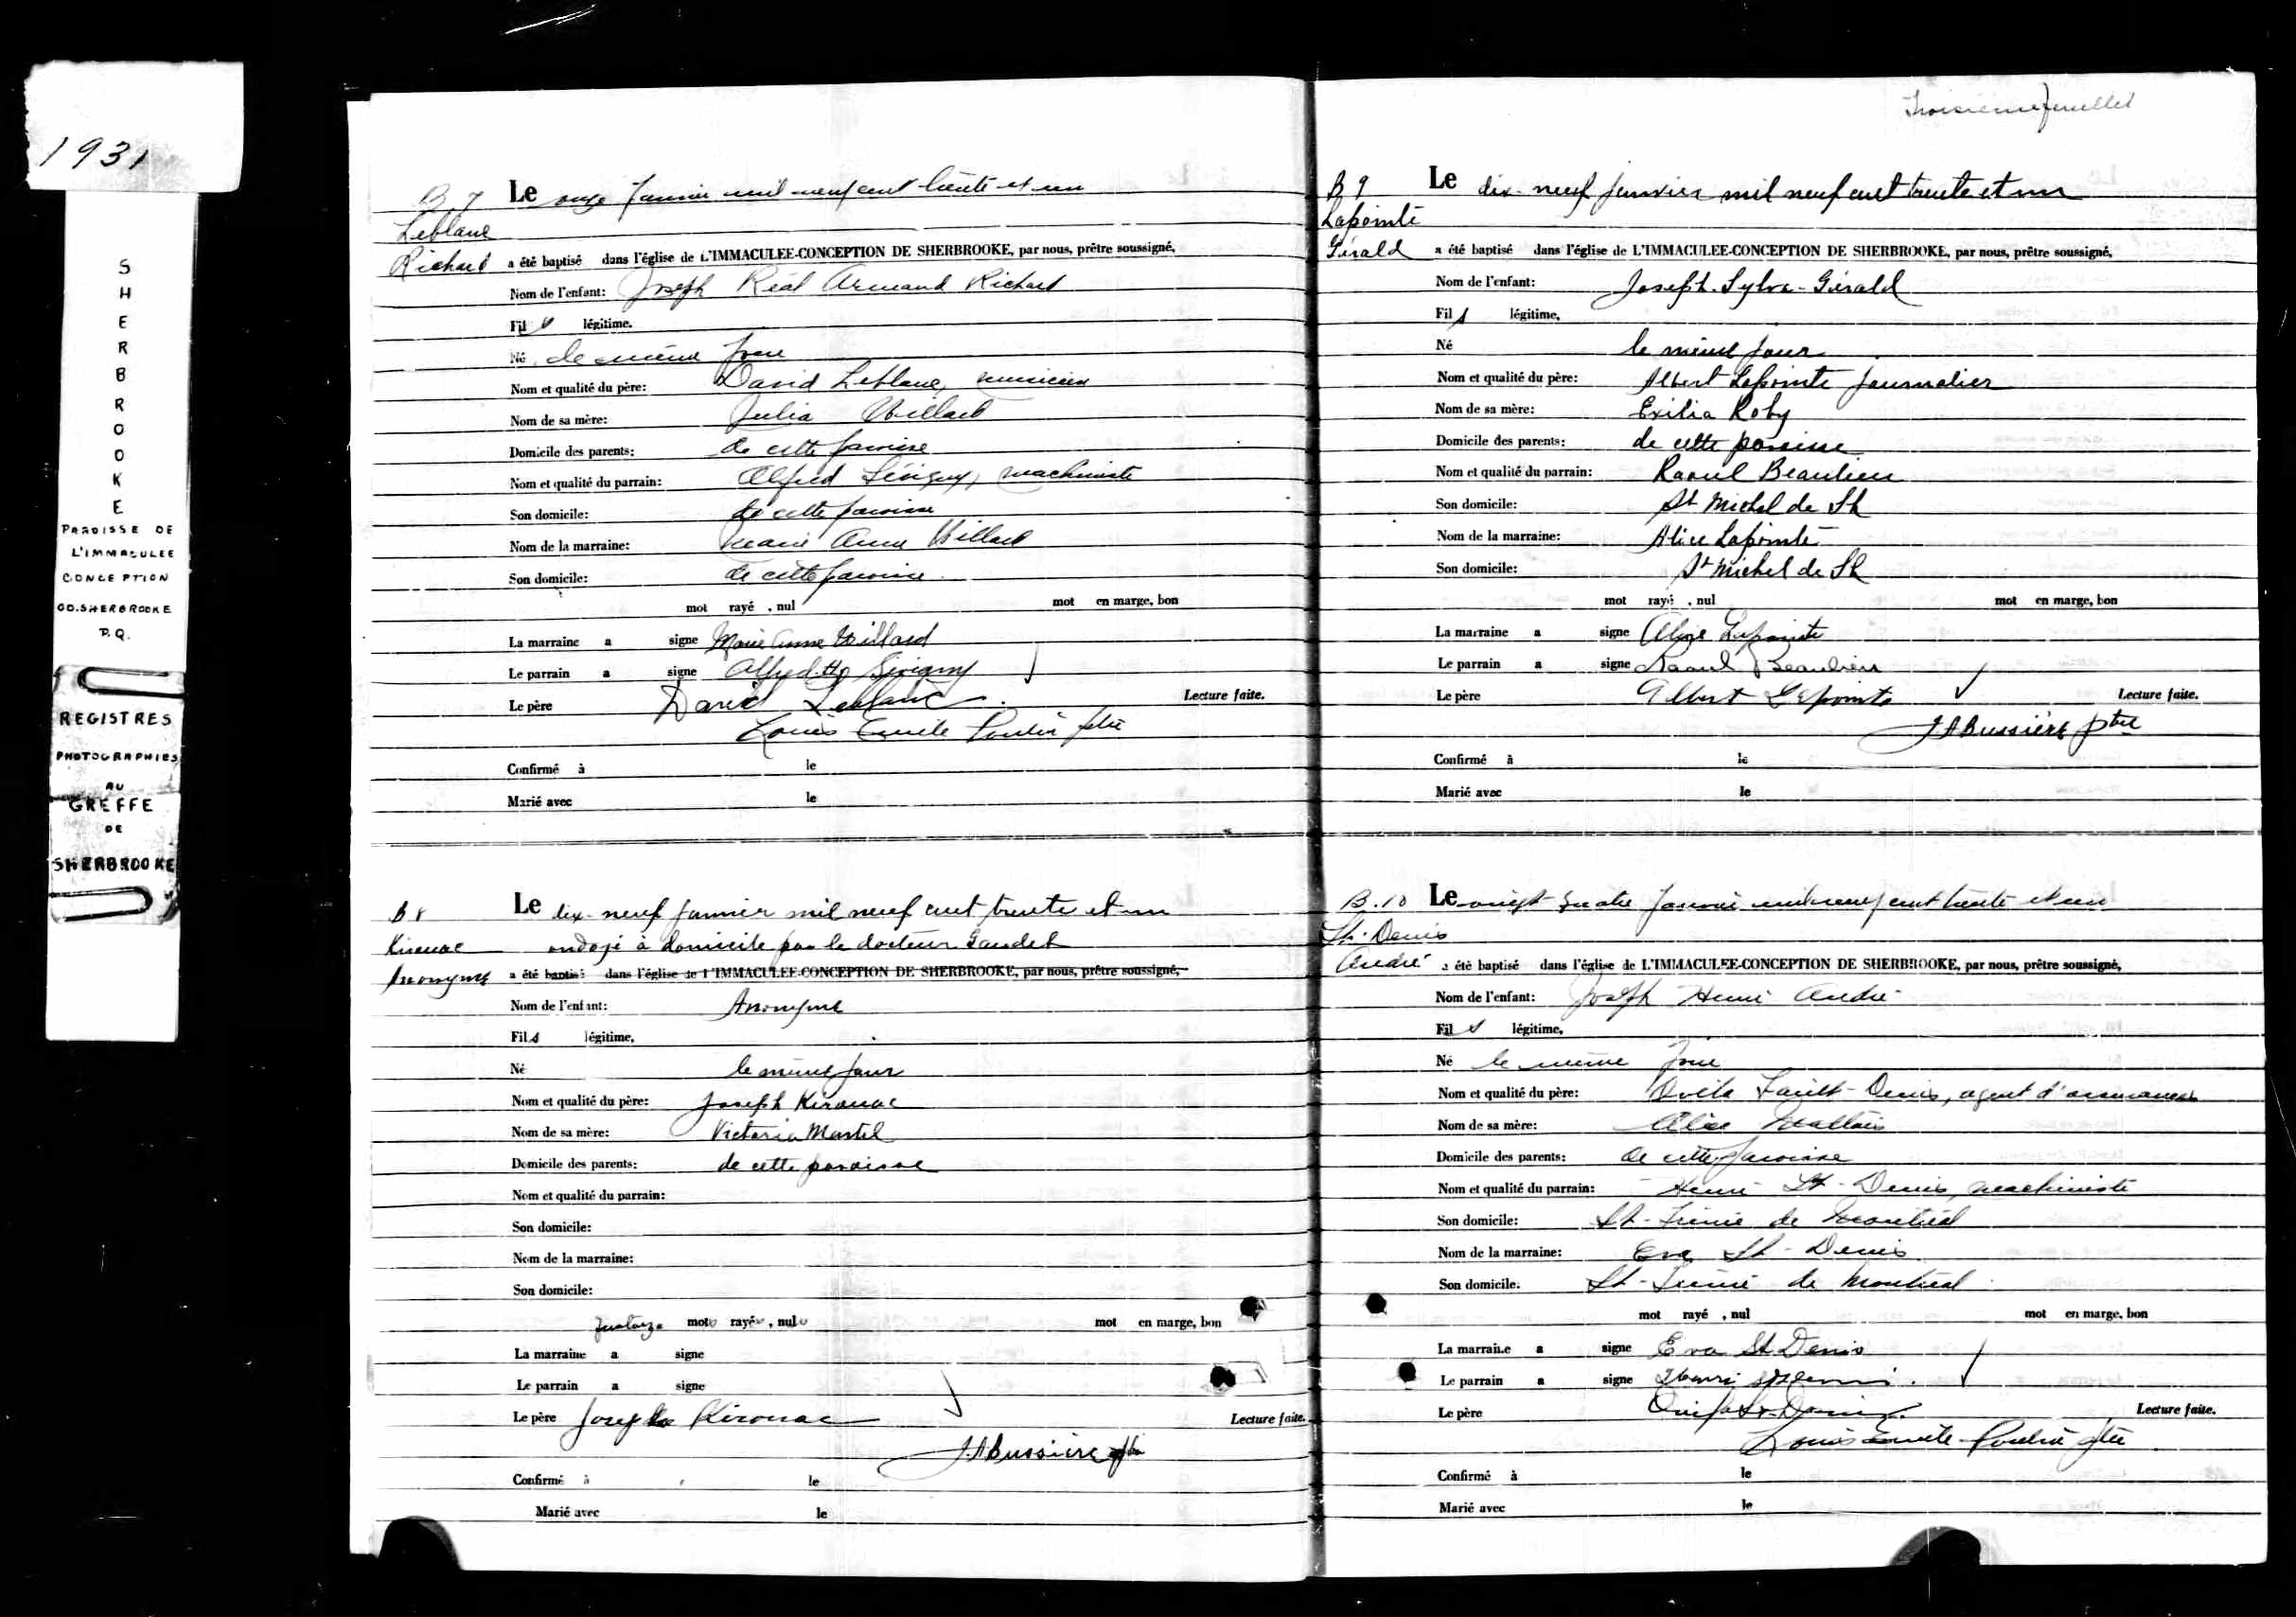 1931
SHERBROOKE
PAROISSE DE
L'IMMACULEE
CONCEPTION
CO. SHERBROOKE
P.Q.
REGISTRES
PHOTOGRAPHIES
AU
GREFFE
DE
SHERBROOKE
B. 7 Le onze Janvier mil neuf cent trente et un
Leblanc
Richard a été baptisé dans l'église de L'IMMACULEE-CONCEPTION DE SHERBROOKE, par nous, prêtre soussigné,
Nom de l'enfant: Joseph Réal Armand Richard
Fils légitime.
Né le même jour
Nom et qualité du père: David Leblanc, musicien
Nom de sa mère: Julia Willard
Domicile des parents: de cette paroisse
Nom et qualité du parrain: Alfred Sévigny, machiniste
Son domicile: de cette paroisse
Nom de la marraine: Marie Anna Willard
Son domicile: de cette paroisse
mot rayé , nul mot en marge, bon
La marraine a signe Marie Anna Willard
Le parrain a signe Sévigny
Le père David Leblanc Lecture faite.
Louis Emile Poulin ptre
Confirmé à le
Marié avec le
B 8 Le dix-neuf janvier mil neuf cent trente et un
Kirouac ondoyé à domicile par le docteur Gaudet
Anonyme a été baptisé dans l'église de l'IMMACULEE-CONCEPTION DE SHERBROOKE, par nous, prêtre soussigné,
Nom de l'enfant: Anonyme
Fils légitime,
Né le même jour
Nom et qualité du père: Joseph Kirouac
Nom de sa mère: Victoria Martel
Domicile des parents: de cette paroisse
Nom et qualité du parrain:
Son domicile:
Nom de la marraine:
Son domicile:
quatorze mots rayés, nuls mot en marge, bon
La marraine a signe
Le parrain a signe
Le père Joseph Kirouac Lecture faite.
J A Bussière ptre
Confirmé à le
Marié avec le
Troisième feuillet
B 9 Le dix-neuf janvier mil neuf cent trente et un
Lapointe
Gérald a été baptisé dans l'église de L'IMMACULEE-CONCEPTION DE SHERBROOKE, par nous, prêtre soussigné,
Nom de l'enfant: Joseph-Sylva-Gérald
Fils légitime,
Né le même jour
Nom et qualité du père: Albert Lapointe journalier
Nom de sa mère: Exilia Roby
Domicile des parents: de cette paroisse
Nom et qualité du parrain: Raoul Beaulieu
Son domicile: St Michel de Sh
Nom de la marraine: Alice Lapointe
Son domicile: St Michel de Sh
mot rayé , nul mot en marge, bon
La marraine a signe Alice Lapointe
Le parrain a signe Raoul Beaulieu
Le père Albert Lapointe Lecture faite.
J A Bussière ptre
Confirmé à le
Marié avec le
B. 10 Le vingt-quatre Janvier mil neuf cent trente et un
St-Denis
André a été baptisé dans l'église de L'IMMACULEE-CONCEPTION DE SHERBROOKE, par nous, prêtre soussigné,
Nom de l'enfant: Joseph Henri André
Fils légitime,
Né le même jour
Nom et qualité du père: Saint-Denis, agent d'assurances
Nom de sa mère: Alice
Domicile des parents: de cette paroisse
Nom et qualité du parrain: Henri St-Denis, machiniste
Son domicile: St-Irénée de Montréal
Nom de la marraine: Eva St-Denis
Son domicile: St-Irénée de Montréal
mot rayé , nul mot en marge, bon
La marraine a signe Eva St Denis
Le parrain a signe Henri St Denis
Le père St-Denis Lecture faite.
Louis Emile Poulin ptre
Confirmé à le
Marié avec le